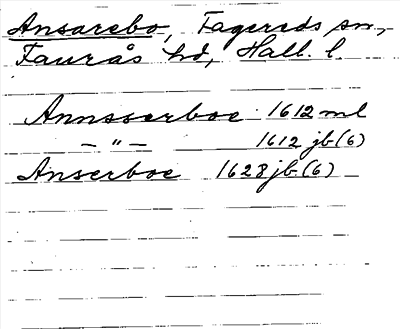 Ansarebo, Fagereds sn,
Faurås hd, Hall. l.
Annsserboe 1612 ml
— " — 1612 jb (6)
Anserboe 1628 jb (6)